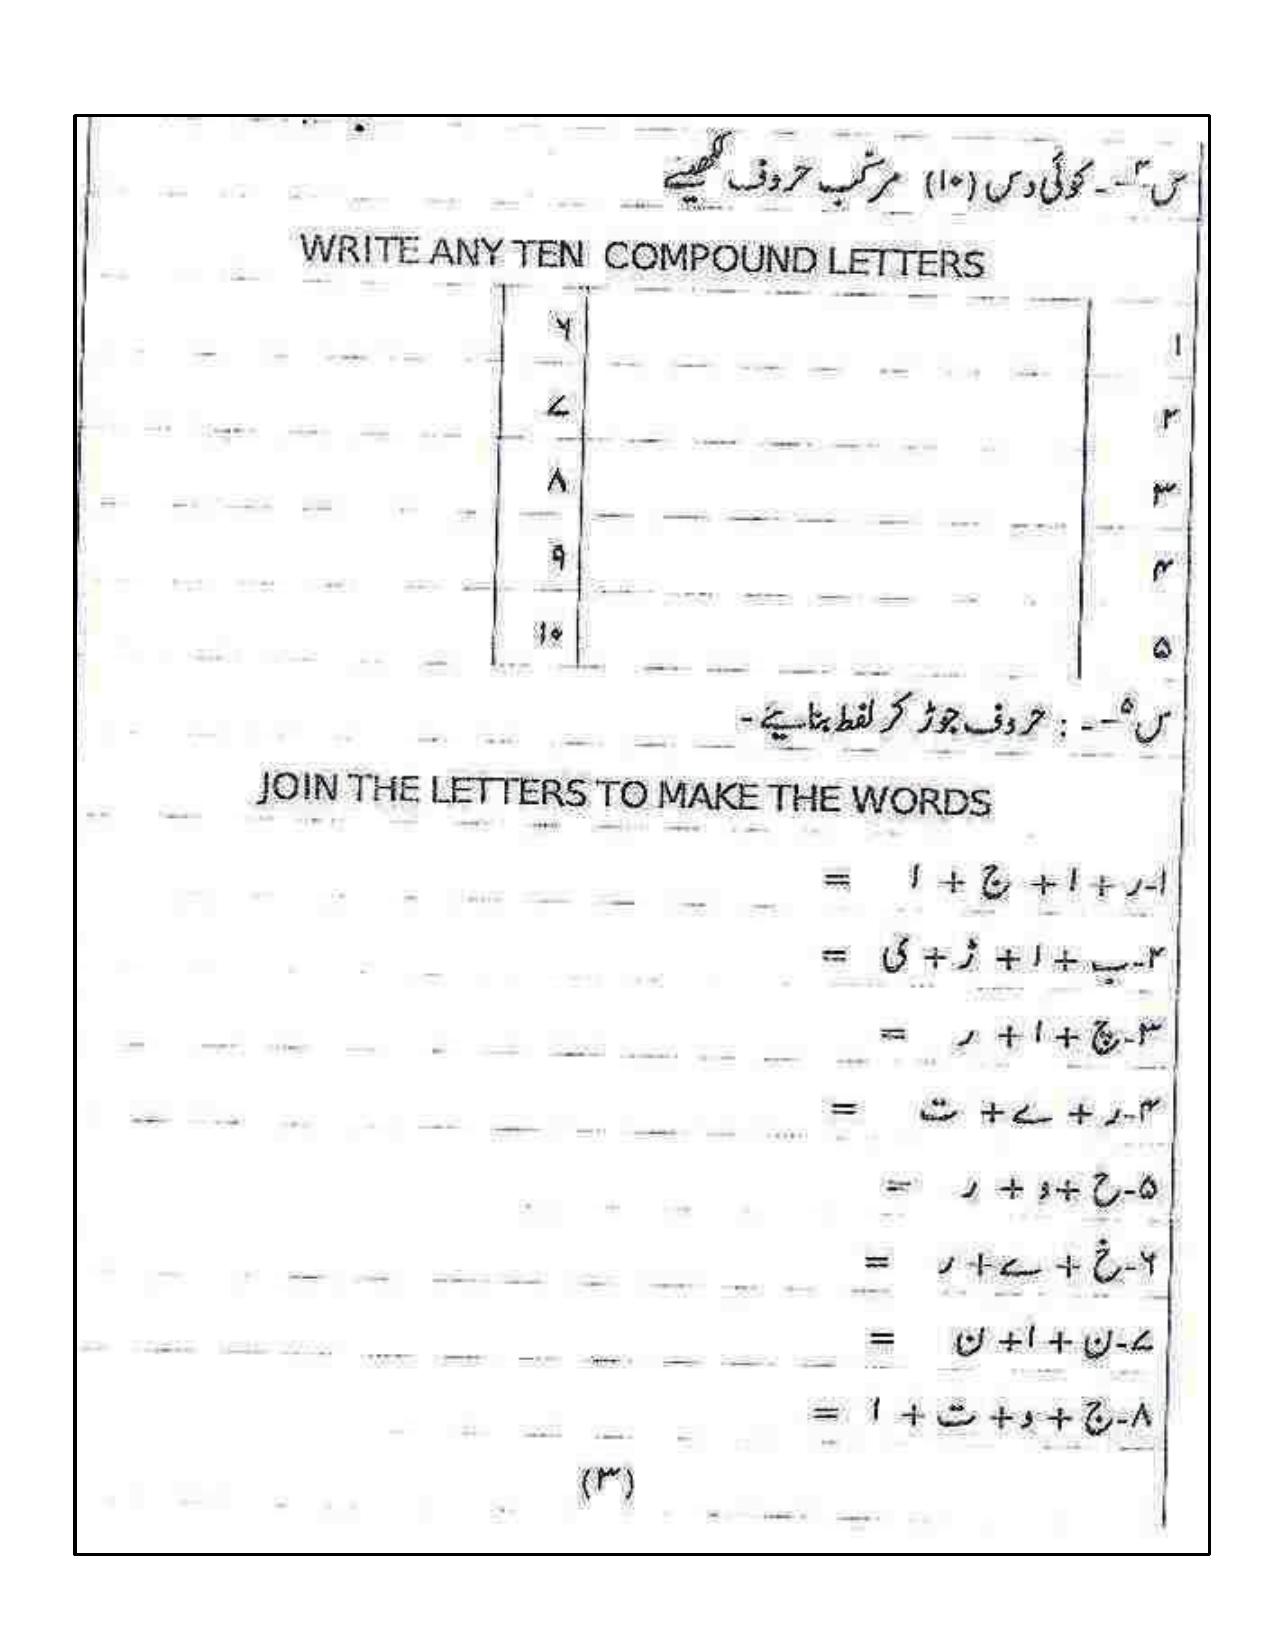 س۴ - کوئی دس (۱۰) مرکب حروف لکھیے
WRITE ANY TEN COMPOUND LETTERS
۱ ۶
۲ ۷
۳ ۸
۴ ۹
۵ ۱۰
س۵ - : حروف جوڑ کر لفظ بنایئے -
JOIN THE LETTERS TO MAKE THE WORDS
۱-ر + ا + ج + ا =
۲-ب + ا + ڑ + ی =
۳-چ + ا + ر =
۴-ر + ے + ت =
۵-ح + و + ر =
۶-خ + ے + ر =
۷-ن + ا + ن =
۸-ج + و + ت + ا =
(۳)